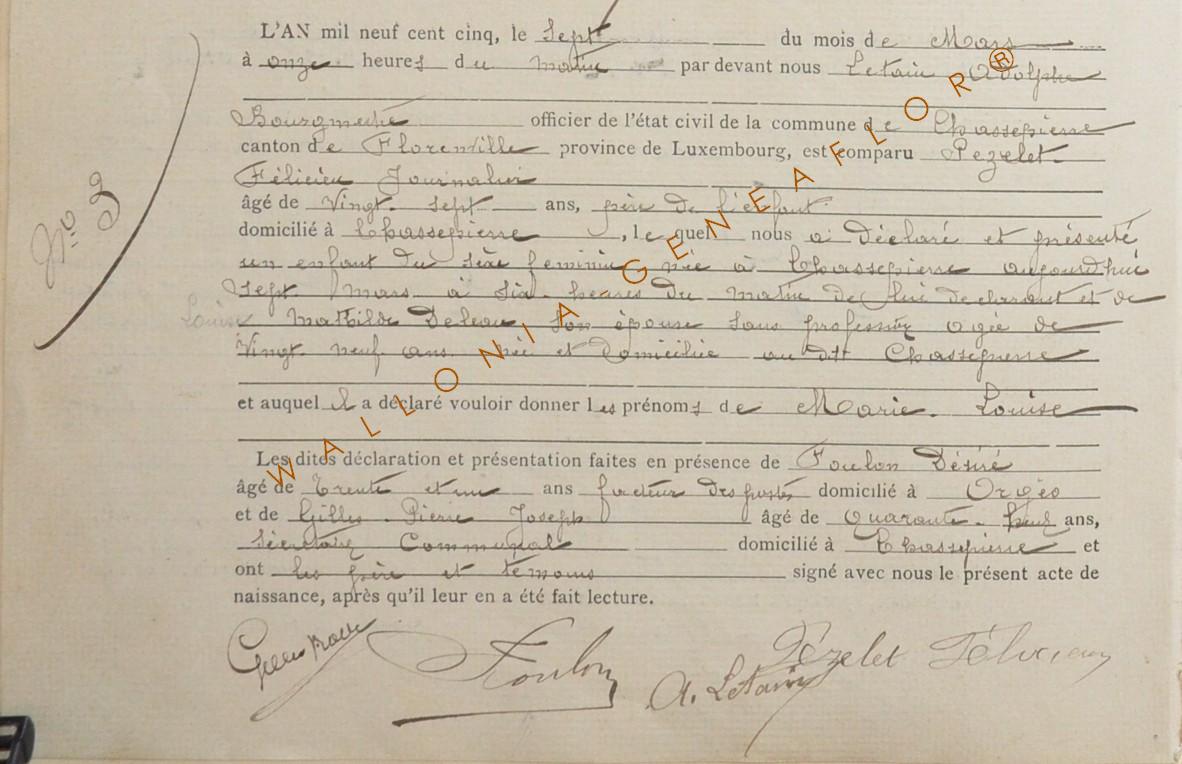 L'AN mil neuf cent cinq, le Sept du mois de Mars
à onze heures du matin par devant nous Letain Adolphe
Bourgmestre officier de l'état civil de la commune de Chassepierre
canton de Florenville province de Luxembourg, est comparu Pezelet
Félicien Journalier
âgé de Vingt-sept ans, père de l'enfant
domicilié à Chassepierre, lequel nous a déclaré et présenté
un enfant du sexe feminin née à Chassepierre aujourdhui
Sept mars à six heures du matin de lui declarant et de
Louise Mathilde Deleau son épouse sans profession agée de
Vingt neuf ans née et domiciliée au dit Chassepierre
et auquel il a déclaré vouloir donner les prénoms de Marie-Louise
Les dites déclaration et présentation faites en présence de Foulon Désiré
âgé de Trente et un ans facteur des postes domicilié à Orgeo
et de Gilles Pierre Joseph âgé de Quarante-neuf ans,
Sécretaire Communal domicilié à Chassepierre et
ont les père et témoins signé avec nous le présent acte de
naissance, après qu'il leur en a été fait lecture.
Foulon
Pézelet Félicien
A. Letain
No 9
WALLONIA-GENEAFLOR®